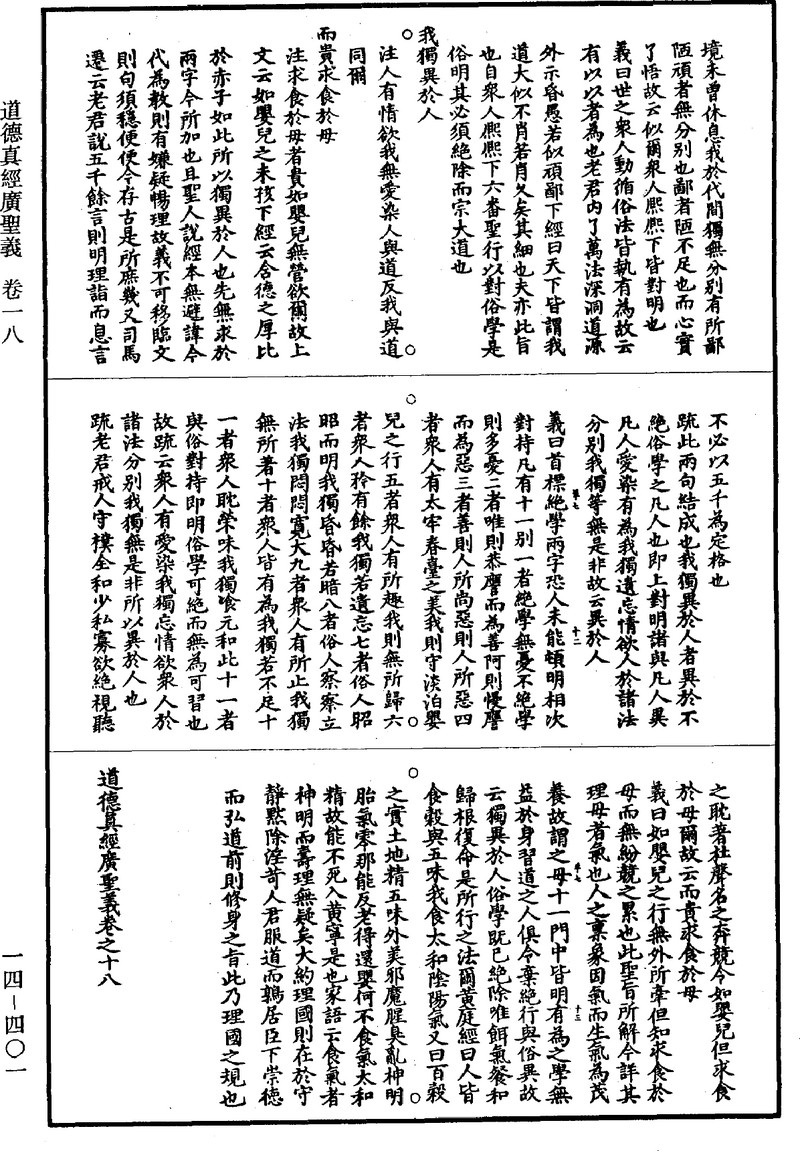 道德真經廣聖義 卷一八
一四—四〇一
境未曾休息我於代間獨無分別有所鄙
陋頑者無分別也鄙者陋不足也而心實
了悟故云似爾衆人熙熙下皆對明也
義曰世之衆人動循俗法皆執有為故云
有以以者為也老君內了萬法深洞道源
外示昏愚若似頑鄙下經曰天下皆謂我
道大似不肖若肖久矣其細也夫亦此旨
也自衆人熙熙下六番聖行以對俗學是
俗明其必須絕除而宗大道也
我獨異於人
注人有情欲我無愛染人與道反我與道
同爾
而貴求食於母
注求食於母者貴如嬰兒無營欲爾故上
文云如嬰兒之未孩下經云含德之厚比
於赤子如此所以獨異於人也先無求於
兩字今所加也且聖人說經本無避諱今
代為教則有嫌疑暢理故義不可移臨文
則句須穩便便今存古是所庶幾又司馬
遷云老君說五千餘言則明理詣而息言
不必以五千為定格也
疏此兩句結成也我獨異於人者異於不
絕俗學之凡人也即上對明諸與凡人異
凡人愛染有為我獨遺忘情欲人於諸法
分別我獨等無是非故云異於人
義曰首標絕學兩字恐人未能頓明相次
對持凡有十一別一者絕學無憂不絕學
則多憂二者唯則恭譍而為善阿則慢譍
而為惡三者善則人所尚惡則人所惡四
者衆人有太牢春臺之美我則守淡泊嬰
兒之行五者衆人有所趣我則無所歸六
者衆人矜有餘我獨若遺忘七者俗人昭
昭而明我獨昏昏若暗八者俗人察察立
法我獨悶悶寬大九者衆人有所止我獨
無所著十者衆人皆有為我獨若不足十
一者衆人耽榮味我獨飡元和此十一者
與俗對持即明俗學可絕而無為可習也
故疏云衆人有愛染我獨忘情欲衆人於
諸法分別我獨無是非所以異於人也
疏老君戒人守樸全和少私寡欲絕視聽
之耽著杜聲名之奔競今如嬰兒但求食
於母爾故云而貴求食於母
義曰如嬰兒之行無外所牽但知求食於
母而無紛競之累也此聖旨所解今詳其
理母者氣也人之稟象因氣而生氣為茂
養故謂之母十一門中皆明有為之學無
益於身習道之人俱令棄絕行與俗異故
云獨異於人俗學既已絕除唯餌氣餐和
歸根復命是所行之法爾黃庭經曰人皆
食穀與五味我食太和陰陽氣又曰百穀
之實土地精五味外美邪魔腥臭亂神明
胎氣零那能反老得還嬰何不食氣太和
精故能不死入黃寧是也家語云食氣者
神明而壽理無疑矣大約理國則在於守
靜默除淫苛人君服道而鶉居臣下崇德
而弘道前則修身之旨此乃理國之規也
道德真經廣聖義卷之十八